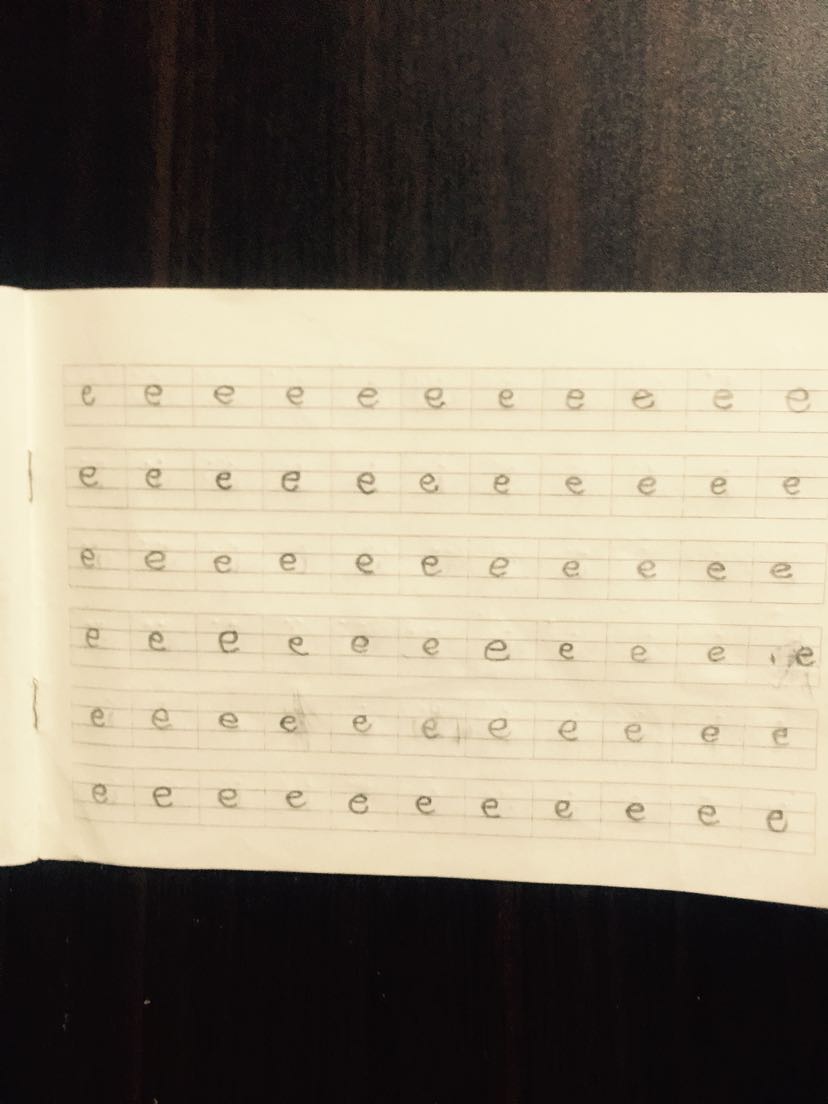 e e e e e e e e e e e
e e e e e e e e e e e
e e e e e e e e e e e
e e e e e e e e e e e
e e e e e e e e e e e
e e e e e e e e e e e